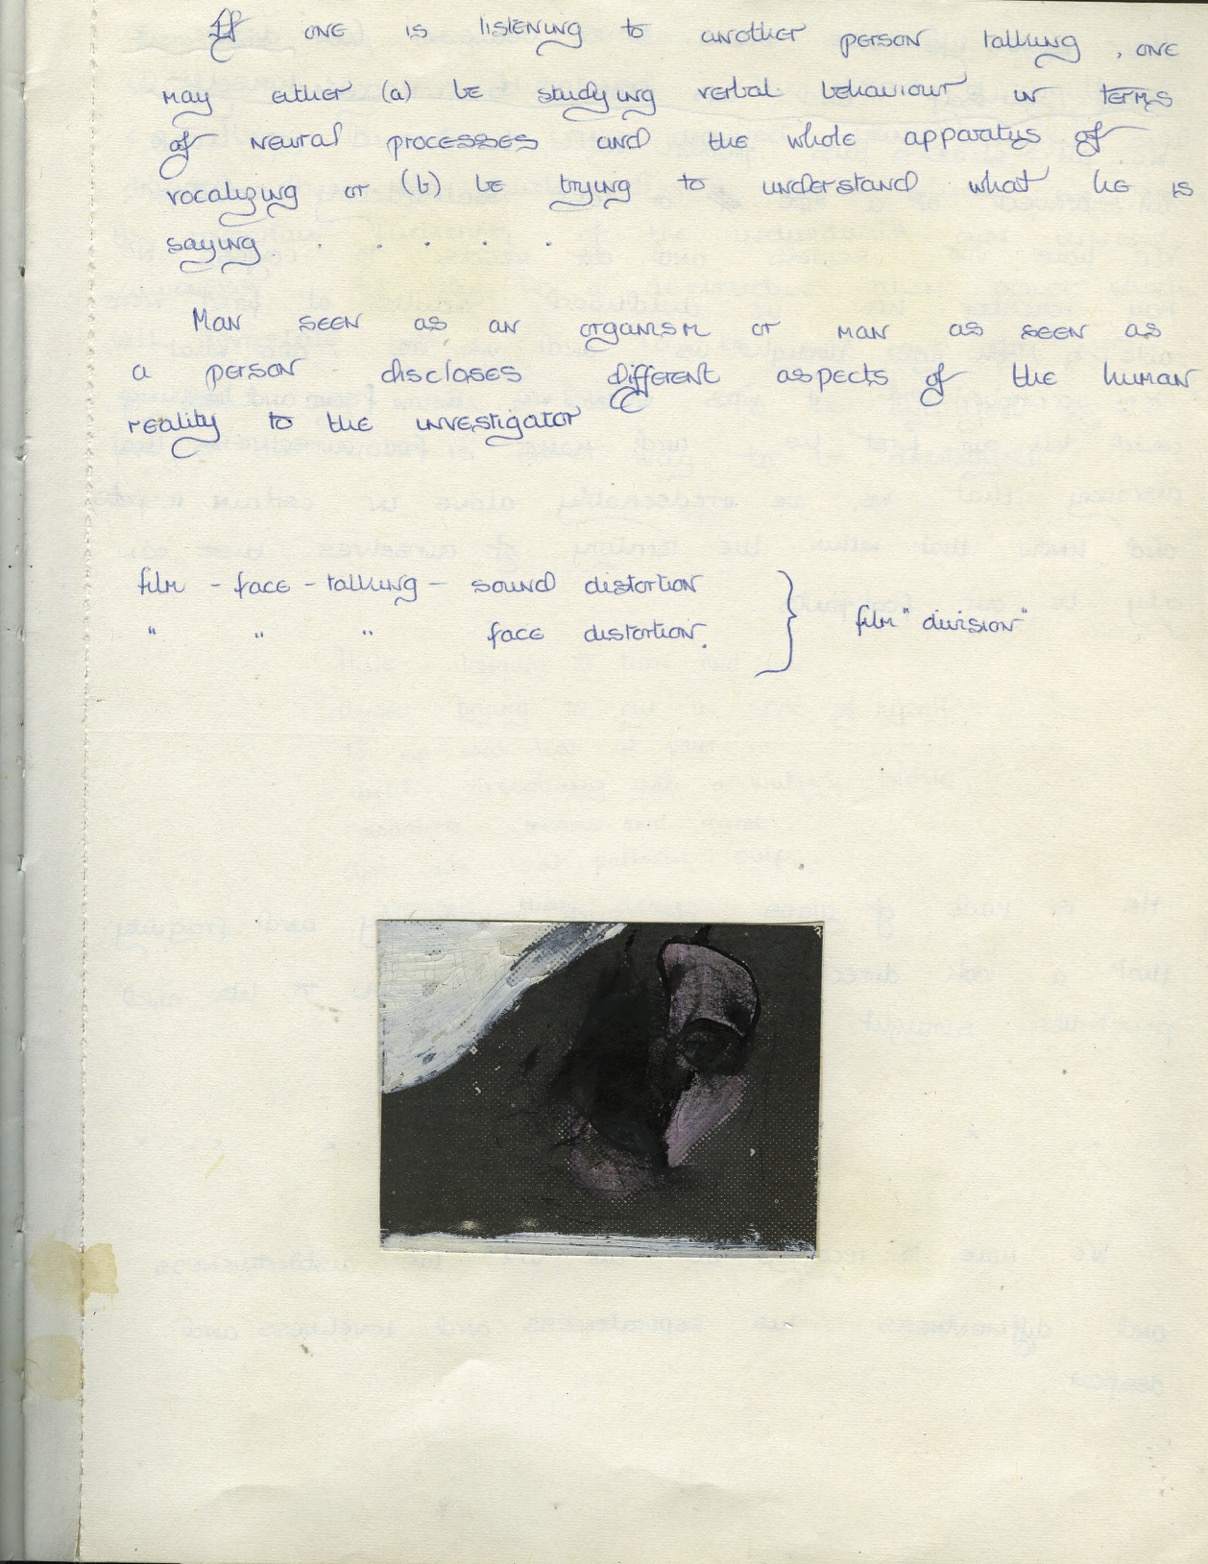 If one is listening to another person talking, one
may either (a) be studying verbal behaviour in terms
of neural processes and the whole apparatus of
vocalizing or (b) be trying to understand what he is
saying . . . . .
Man seen as an organism or man as seen as
a person discloses different aspects of the human
reality to the investigator
film - face - talking - sound distortion
" " " face distortion. } film "division"